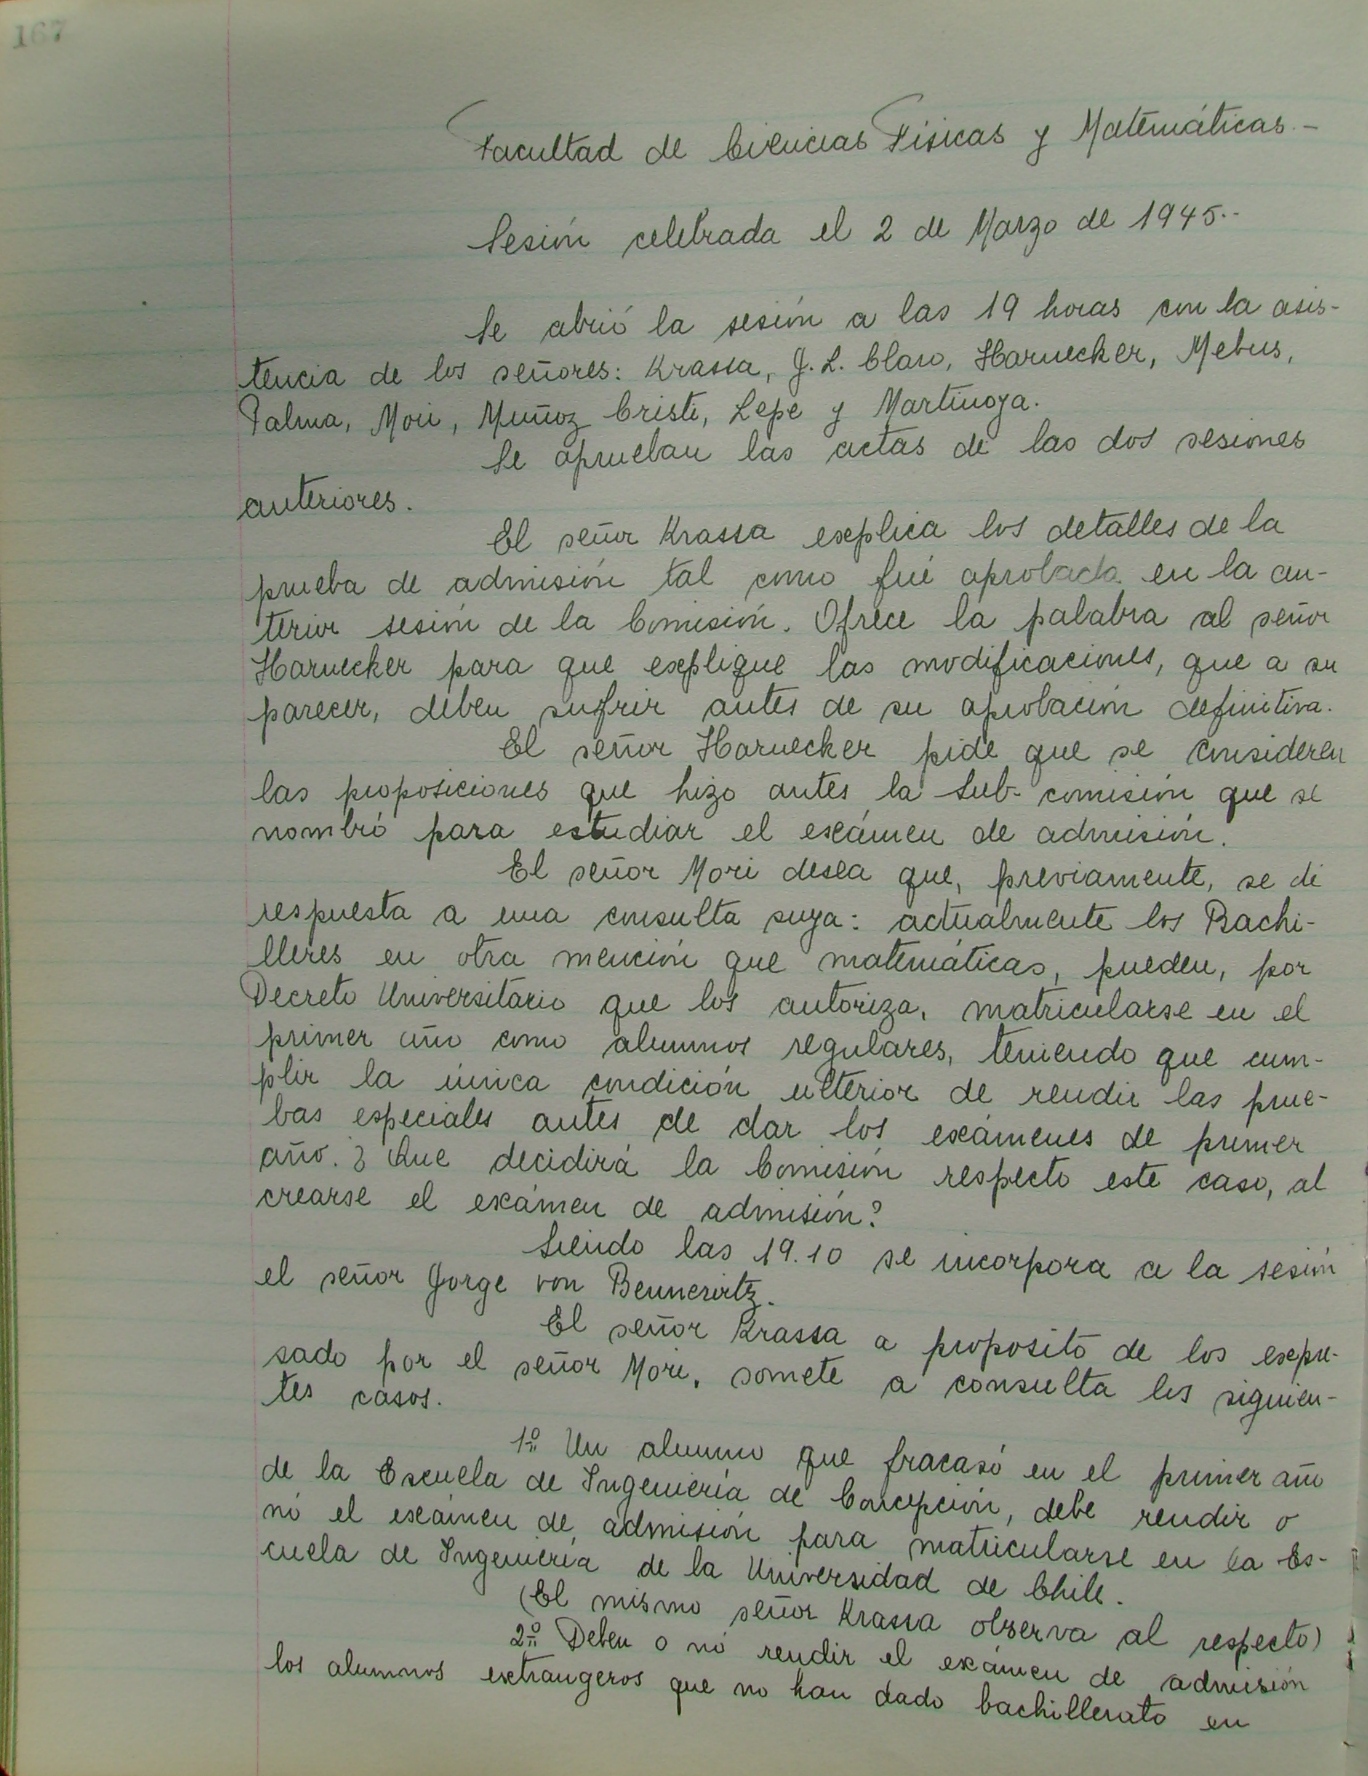 167
Facultad de Ciencias Físicas y Matemáticas.-
Sesión celebrada el 2 de Marzo de 1945.-
Se abrió la sesión a las 19 horas con la asis-
tencia de los señores: Krassa, J. L. Claro, Harnecker, Mebus,
Palma, Mori, Muñoz Cristi, Lepe y Martinoya.
Se aprueban las actas de las dos sesiones
anteriores.
El señor Krassa explica los detalles de la
prueba de admisión tal como fué aprobada en la an-
terior sesión de la Comisión. Ofrece la palabra al señor
Harnecker para que explique las modificaciones, que a su
parecer, deben sufrir antes de su aprobación definitiva.
El señor Harnecker pide que se consideren
las proposiciones que hizo antes la Sub-comisión que se
nombró para estudiar el exámen de admisión.
El señor Mori desea que, previamente, se dé
respuesta a una consulta suya: actualmente los Bachi-
lleres en otra mención que matemáticas, pueden, por
Decreto Universitario que los autoriza, matricularse en el
primer año como alumnos regulares, teniendo que cum-
plir la única condición ulterior de rendir las prue-
bas especiales antes de dar los exámenes de primer
año. ¿Que decidirá la Comisión respecto este caso, al
crearse el exámen de admisión?
Siendo las 19.10 se incorpora a la sesión
el señor Jorge von Bennewitz.
El señor Krassa a proposito de los expre-
sado por el señor Mori, somete a consulta los siguien-
tes casos.
1º Un alumno que fracasó en el primer año
de la Escuela de Ingeniería de Concepción, debe rendir o
nó el exámen de admisión para matricularse en la Es-
cuela de Ingeniería de la Universidad de Chile.
(El mismo señor Krassa observa al respecto)
2º Deben o nó rendir el exámen de admisión
los alumnos extrangeros que no han dado bachillerato en